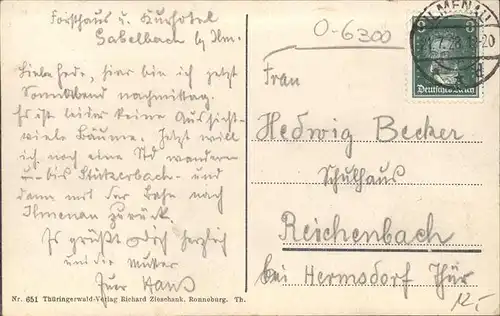 Forsthaus u. Kurhotel
Gabelbach bei Ilm.
Liebe Hede, hier bin ich jetzt
Sonnabend nachmittag.
Es ist leider keine Aussicht -
viele Bäume. Jetzt will
ich noch eine Std wandern
u- bis Stützerbach - und
dann mit der Bahn nach
Ilmenau zurück.
Es grüßt Dich herzlich
und die Mutter
Euer Hans
Nr. 651 Thüringerwald-Verlag Richard Zieschank, Ronneburg. Th.
O-6300
ILMENAU
7.28
-20
Deutsches Reich
Frau
Hedwig Becker
Schulhaus
Reichenbach
bei Hermsdorf Thür
12,-